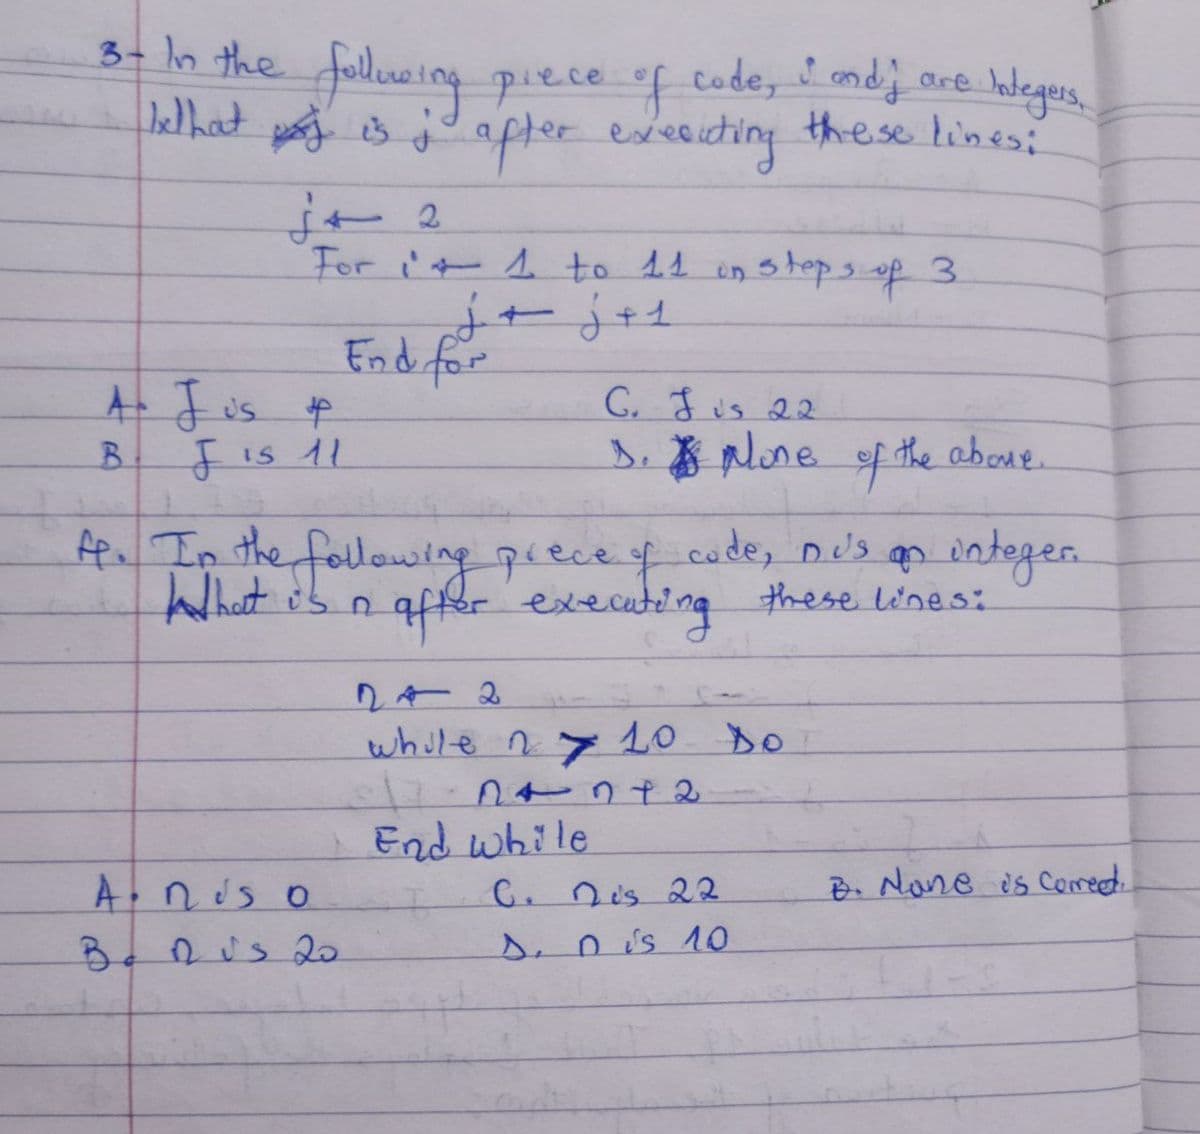 3- In the following piece of code, i and j are Integers,
What is j after executing these lines:
j ← 2
For i ← 1 to 11 in steps of 3
j ← j+1
End for
A. J is 4
C. J is 22
B J is 11
D. None of the above.
4. In the following piece of code, n is an integer.
What is n after executing these lines:
n ← 2
while n > 10 DO
n ← n + 2
End while
A. n is 0
C. n is 22
B. None is Correct.
B. n is 20
D. n is 10